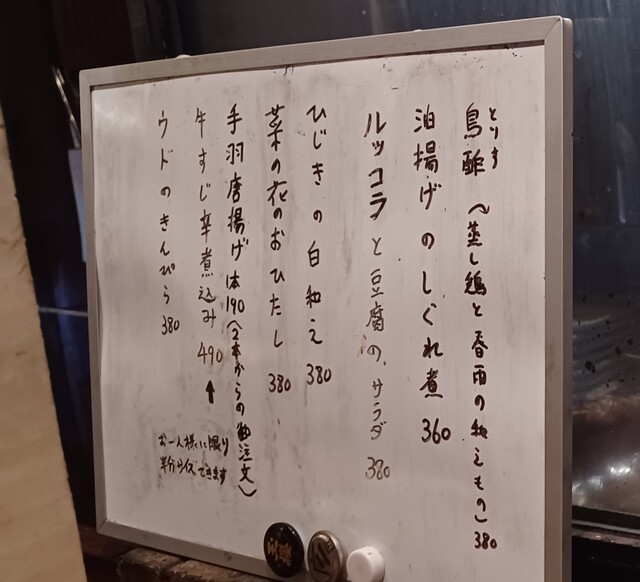 とりす
鳥酢 〜蒸し鶏と春雨の和えもの〉 380
油揚げのしぐれ煮 360
ルッコラと豆腐の、サラダ 380
ひじきの白和え 380
菜の花のおひたし 380
手羽唐揚げ 1本190〈2本からの御注文〉
牛すじ辛煮込み 490
↑
お一人様に限り
半分サイズできます
ウドのきんぴら 380